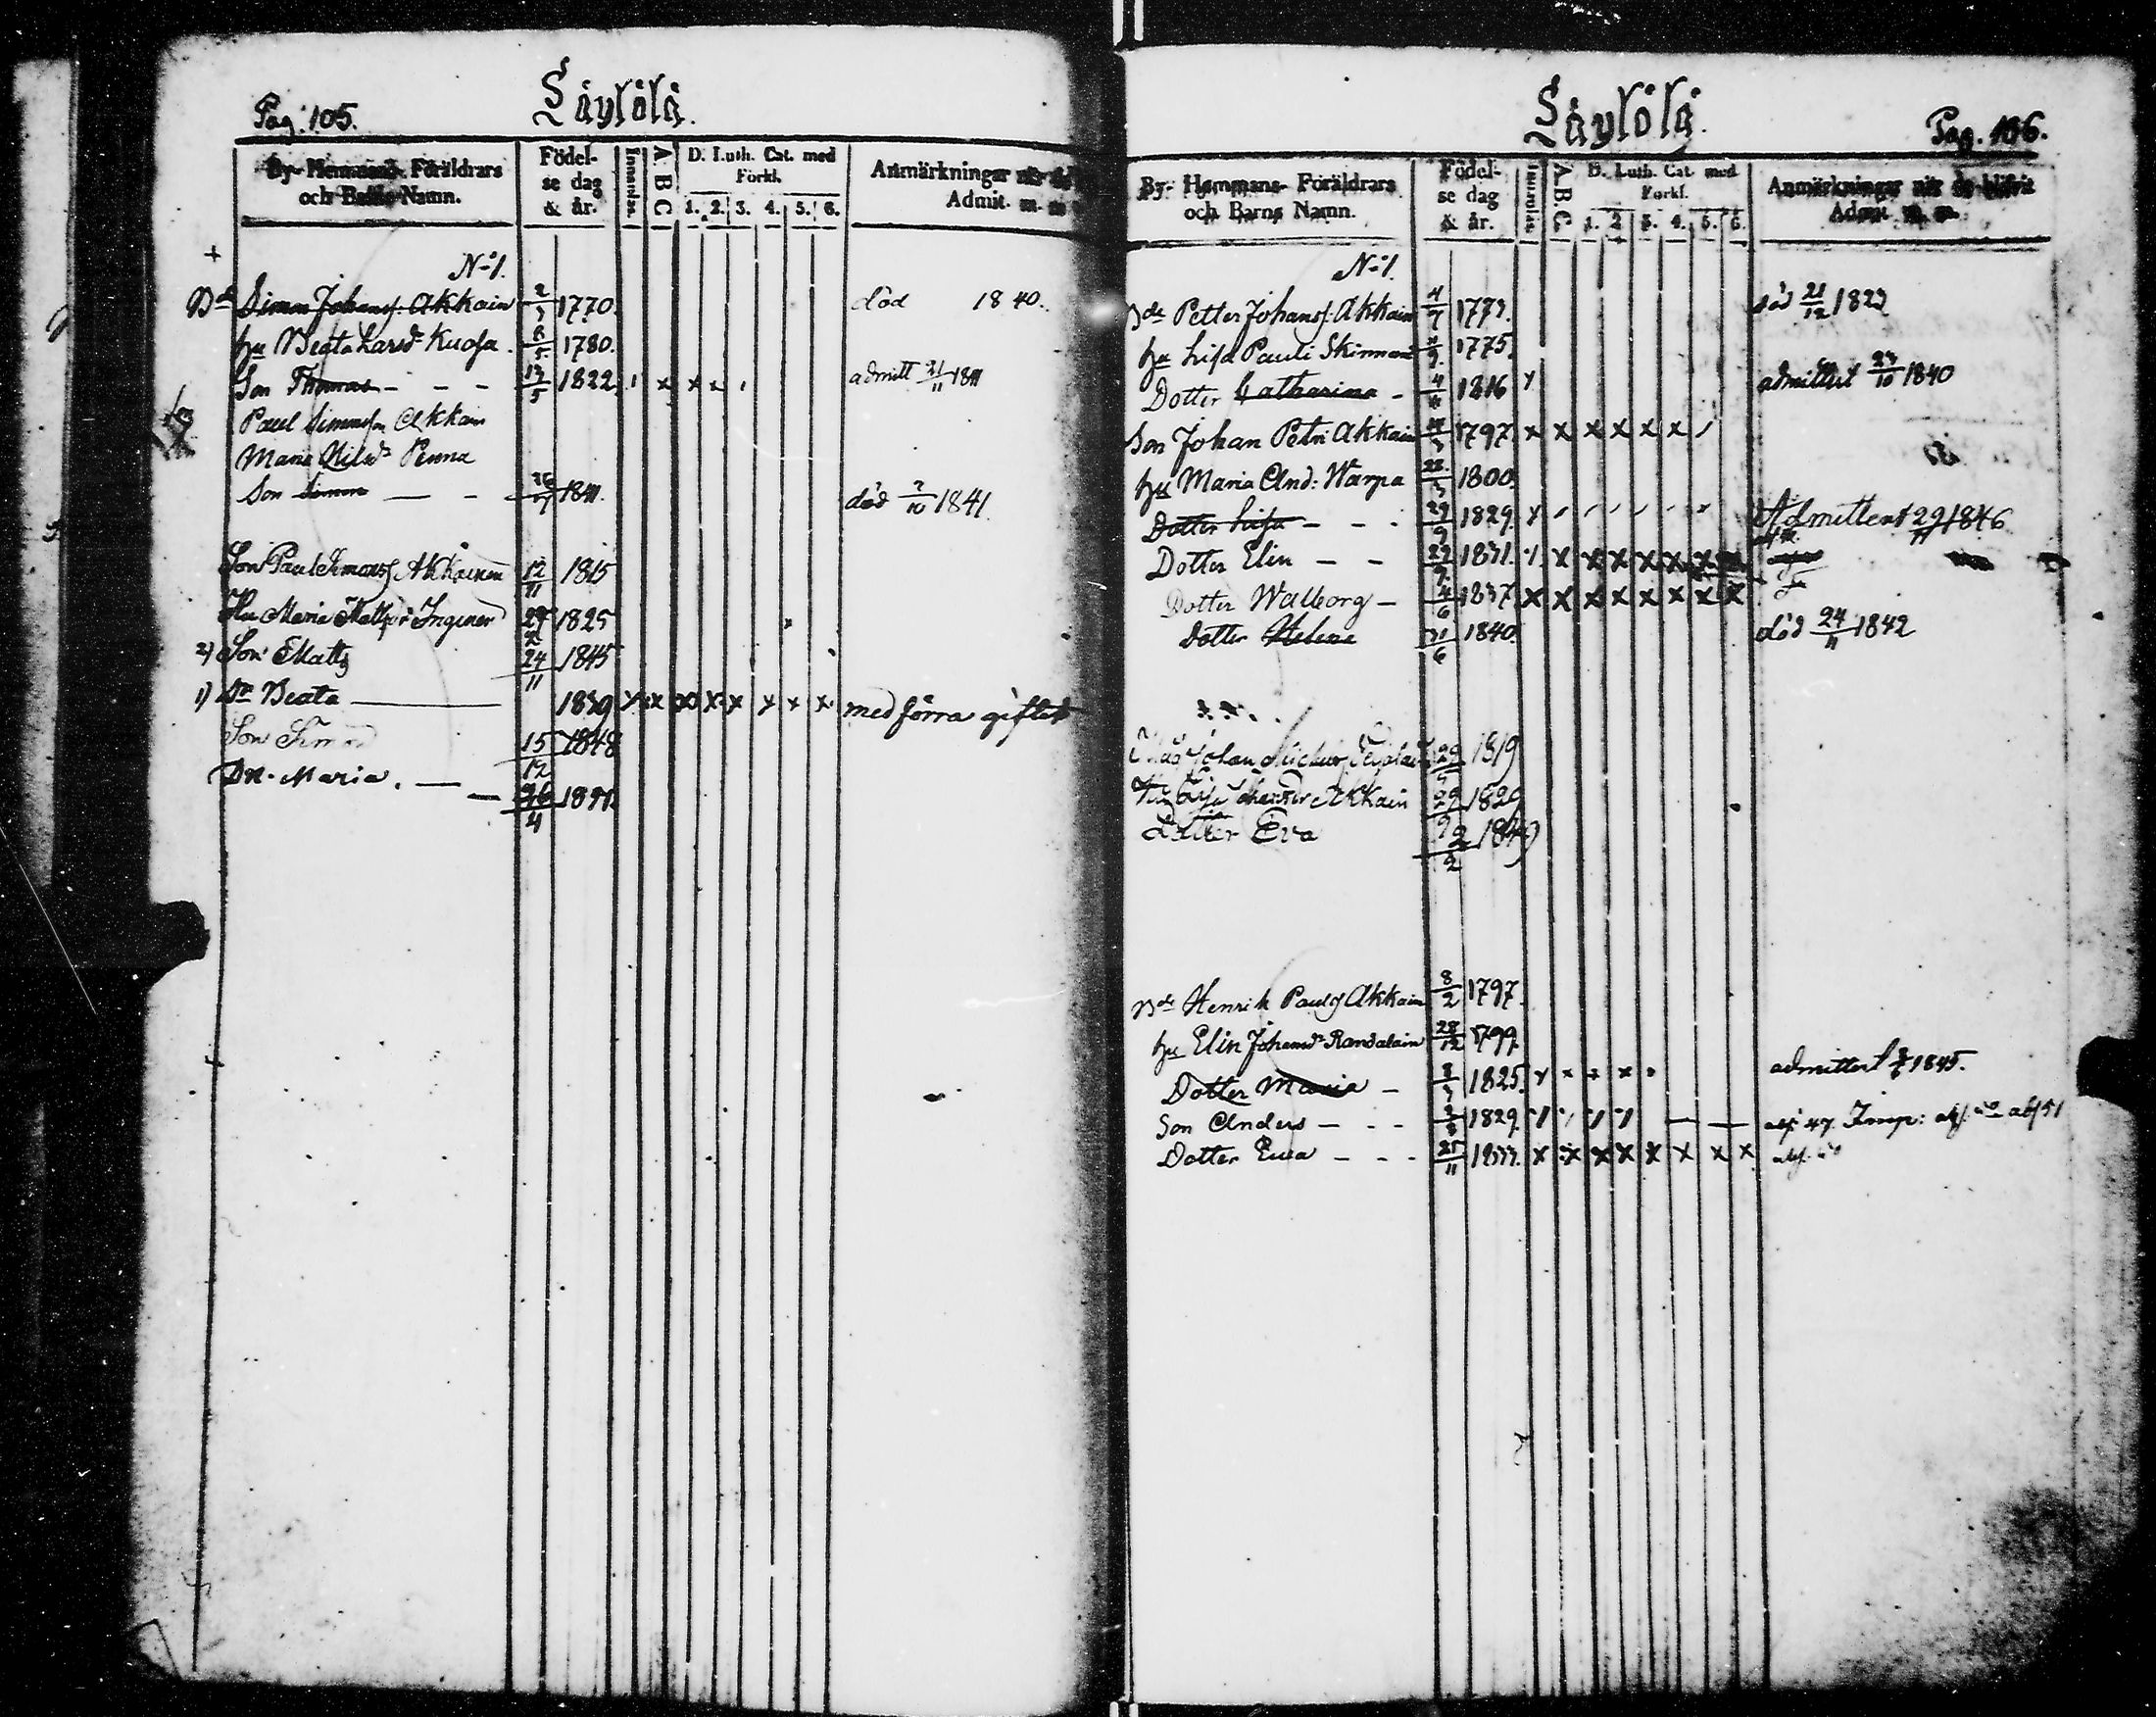 Pag. 105.
Säylölä.
By- Hemmans- Föräldrars och Barns Namn.
Födelse dag & år.
Innanläs.
A B C
D. Luth. Cat. med Förkl.
1. 2. 3. 4. 5. 6.
Anmärkningar
Admit.
N:o 1.
Bd Simon Johansf: Akkain 2/3 1770. död 1840.
hu Beata Larsdr Kuosa. 8/5 1780.
Son Thomas - - - 13/5 1822 admitt 21/11 1841
Paul Simonsson Akkain
Maria Nilsdr Penna
Son Simon — - 26/7 1841. död 2/10 1841.
Son Paul Simonsf Akkainen 12/11 1815
Hu Maria Mattsdr Inginen 29/2 1825
2) Son Matts 24/11 1845
1) Dr Beata 1839 x x x x x x x x med förra giftet
Son Simon 15/12 1848
Dr. Maria. — 26/4 1851.
Säylölä.
Pag. 106.
By- Hemmans- Föräldrars och Barns Namn.
Födelse dag & år.
Innanläs.
A.B.C.
D. Luth. Cat. med Förkl.
1. 2 3. 4. 5. 6.
Anmärkningar när de blifvit Admit. m. m.
N:o 1.
Bde Petter Johansf: Akkain 4/7 1773. död 21/12 1823
hu Lisa Pauli Skinnari 1775.
Dotter Catharina - 1816 x admitterat 23/10 1840
Son Johan Petri Akkain 1797. x x x x x x
hu Maria And: Warpa 1800.
Dotter Lisa - - - 29/9 1829. Admitterat 29/11 1846
Dotter Elin - - 22/9 1831. x x x x x x
Dotter Walborg - 4/6 1837. x x x x x x x x
Dotter Helena 21/6 1840. död 24/11 1842
Johan 29 1819
Hu Lisa Johansdr Akkain 29/9 1829
Dotter Eva 2/2 1849
Bde Henrik Paulsf Akkain 8/2 1797.
hu Elin Johansdr Randalain 28/12 1799.
Dotter Maria - 8/3 1825. admitterat 1845.
Son Anders - - - 1829.
Dotter Ewa - - - 25/11 1833. x x x x x x x x